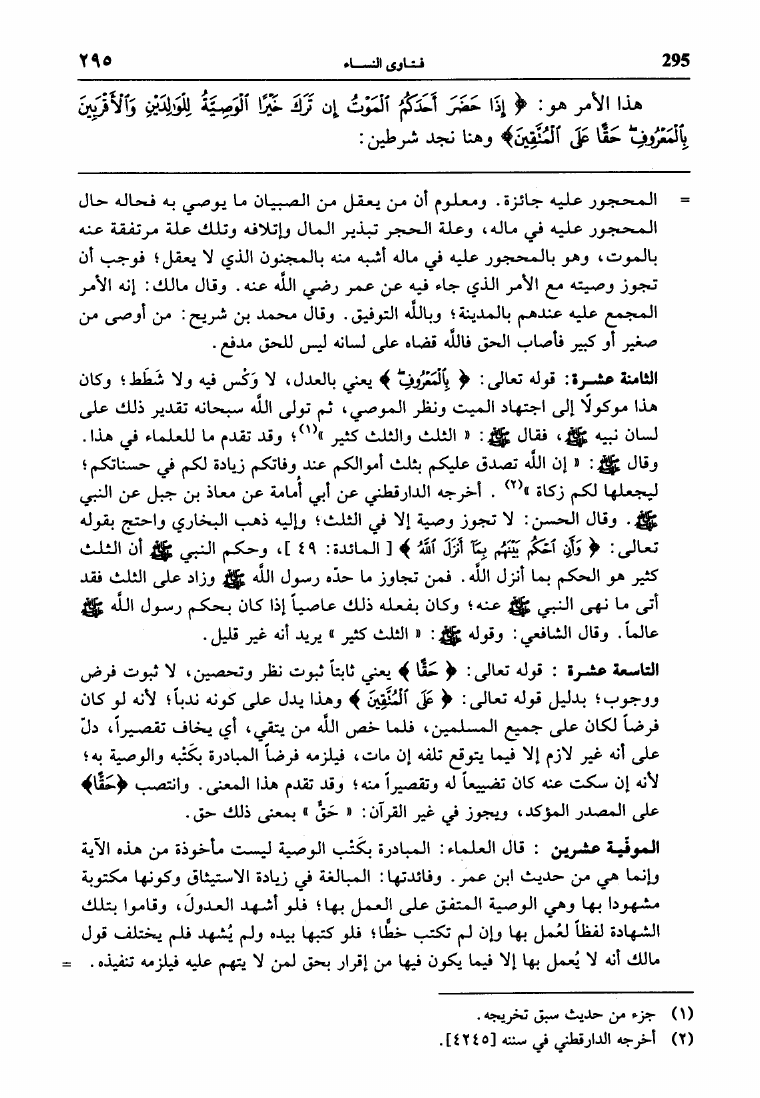 295 فتاوى النساء ٢٩٥
هذا الأمر هو: ﴿ إِذَا حَضَرَ أَحَدَكُمُ ٱلْمَوْتُ إِن تَرَكَ خَيْرًا ٱلْوَصِيَّةُ لِلْوَٰلِدَيْنِ وَٱلْأَقْرَبِينَ
بِٱلْمَعْرُوفِ ۖ حَقًّا عَلَى ٱلْمُتَّقِينَ﴾ وهنا نجد شرطين:
= المحجور عليه جائزة. ومعلوم أن من يعقل من الصبيان ما يوصي به فحاله حال
المحجور عليه في ماله، وعلة الحجر تبذير المال وإتلافه وتلك علة مرتفقة عنه
بالموت، وهو بالمحجور عليه في ماله أشبه منه بالمجنون الذي لا يعقل؛ فوجب أن
تجوز وصيته مع الأمر الذي جاء فيه عن عمر رضي الله عنه. وقال مالك: إنه الأمر
المجمع عليه عندهم بالمدينة؛ وبالله التوفيق. وقال محمد بن شريح: من أوصى من
صغير أو كبير فأصاب الحق فالله قضاه على لسانه ليس للحق مدفع.
الثامنة عشرة: قوله تعالى: ﴿ بِٱلْمَعْرُوفِ ۖ ﴾ يعني بالعدل، لا وَكْس فيه ولا شَطَط؛ وكان
هذا موكولًا إلى اجتهاد الميت ونظر الموصي، ثم تولى الله سبحانه تقدير ذلك على
لسان نبيه ﷺ، فقال ﷺ: « الثلث والثلث كثير »(١)؛ وقد تقدم ما للعلماء في هذا.
وقال ﷺ: « إن الله تصدق عليكم بثلث أموالكم عند وفاتكم زيادة لكم في حسناتكم؛
ليجعلها لكم زكاة »(٢) . أخرجه الدارقطني عن أبي أُمامة عن معاذ بن جبل عن النبي
ﷺ. وقال الحسن: لا تجوز وصية إلا في الثلث؛ وإليه ذهب البخاري واحتج بقوله
تعالى: ﴿ وَأَنِ ٱحْكُم بَيْنَهُم بِمَآ أَنزَلَ ٱللَّهُ ﴾ [ المائدة: ٤٩ ]، وحكم النبي ﷺ أن الثلث
كثير هو الحكم بما أنزل الله. فمن تجاوز ما حدّه رسول الله ﷺ وزاد على الثلث فقد
أتى ما نهى النبي ﷺ عنه؛ وكان بفعله ذلك عاصياً إذا كان بحكم رسول الله ﷺ
عالماً. وقال الشافعي: وقوله ﷺ: « الثلث كثير » يريد أنه غير قليل.
التاسعة عشرة : قوله تعالى: ﴿ حَقًّا ﴾ يعني ثابتاً ثبوت نظر وتحصين، لا ثبوت فرض
ووجوب؛ بدليل قوله تعالى: ﴿ عَلَى ٱلْمُتَّقِينَ ﴾ وهذا يدل على كونه ندباً؛ لأنه لو كان
فرضاً لكان على جميع المسلمين، فلما خص الله من يتقي، أي يخاف تقصيراً، دلّ
على أنه غير لازم إلا فيما يتوقع تلفه إن مات، فيلزمه فرضاً المبادرة بكَتْبه والوصية به؛
لأنه إن سكت عنه كان تضييعاً له وتقصيراً منه؛ وقد تقدم هذا المعنى. وانتصب ﴿حَقًّا﴾
على المصدر المؤكد، ويجوز في غير القرآن: « حَقٌّ » بمعنى ذلك حق.
الموفّية عشرين : قال العلماء: المبادرة بكَتْب الوصية ليست مأخوذة من هذه الآية
وإنما هي من حديث ابن عمر. وفائدتها: المبالغة في زيادة الاستيثاق وكونها مكتوبة
مشهودا بها وهي الوصية المتفق على العمل بها؛ فلو أشهد العدولَ، وقاموا بتلك
الشهادة لفظاً لعُمل بها وإن لم تكتب خطًّا؛ فلو كتبها بيده ولم يُشهد فلم يختلف قول
مالك أنه لا يُعمل بها إلا فيما يكون فيها من إقرار بحق لمن لا يتهم عليه فيلزمه تنفيذه. =
(١) جزء من حديث سبق تخريجه.
(٢) أخرجه الدارقطني في سننه [٤٢٤٥].